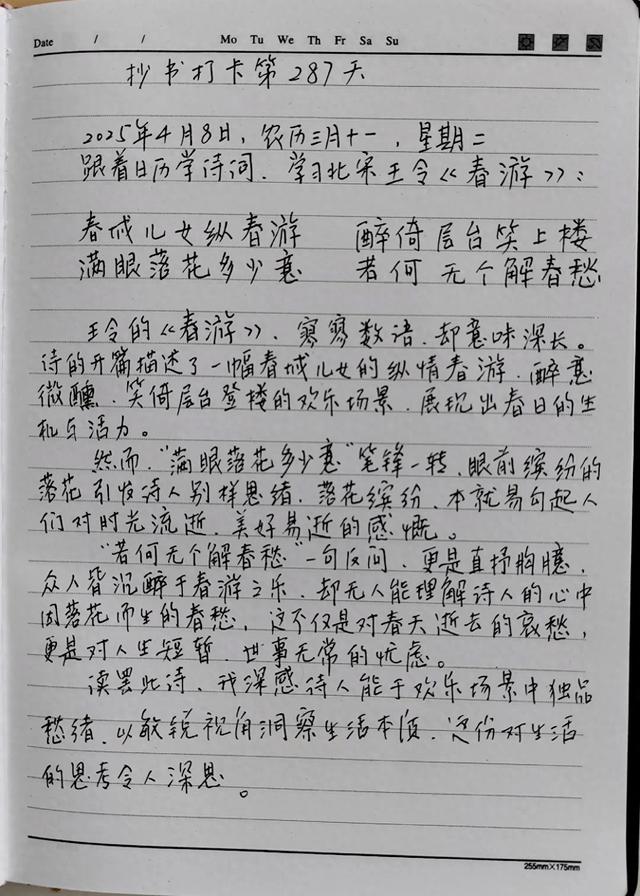 Date / / Mo Tu We Th Fr Sa Su
抄书打卡第287天
2025年4月8日，农历三月十一，星期二
跟着日历学诗词，学习北宋王令《春游》：
春城儿女纵春游 醉倚层台笑上楼
满眼落花多少意 若何无个解春愁
王令的《春游》，寥寥数语，却意味深长。
诗的开篇描述了一幅春城儿女的纵情春游，醉意
微醺，笑倚层台登楼的欢乐场景，展现出春日的生
机与活力。
然而，“满眼落花多少意”笔锋一转，眼前缤纷的
落花引发诗人别样思绪，落花缤纷，本就易勾起人
们对时光流逝，美好易逝的感慨。
“若何无个解春愁”一句反问，更是直抒胸臆，
众人皆沉醉于春游之乐，却无人能理解诗人的心中
因落花而生的春愁，这不仅是对春天逝去的哀愁，
更是对人生短暂，世事无常的忧虑。
读罢此诗，我深感诗人能于欢乐场景中独品
愁绪，以敏锐视角洞察生活本质，这份对生活
的思考令人深思。
255mm×175mm